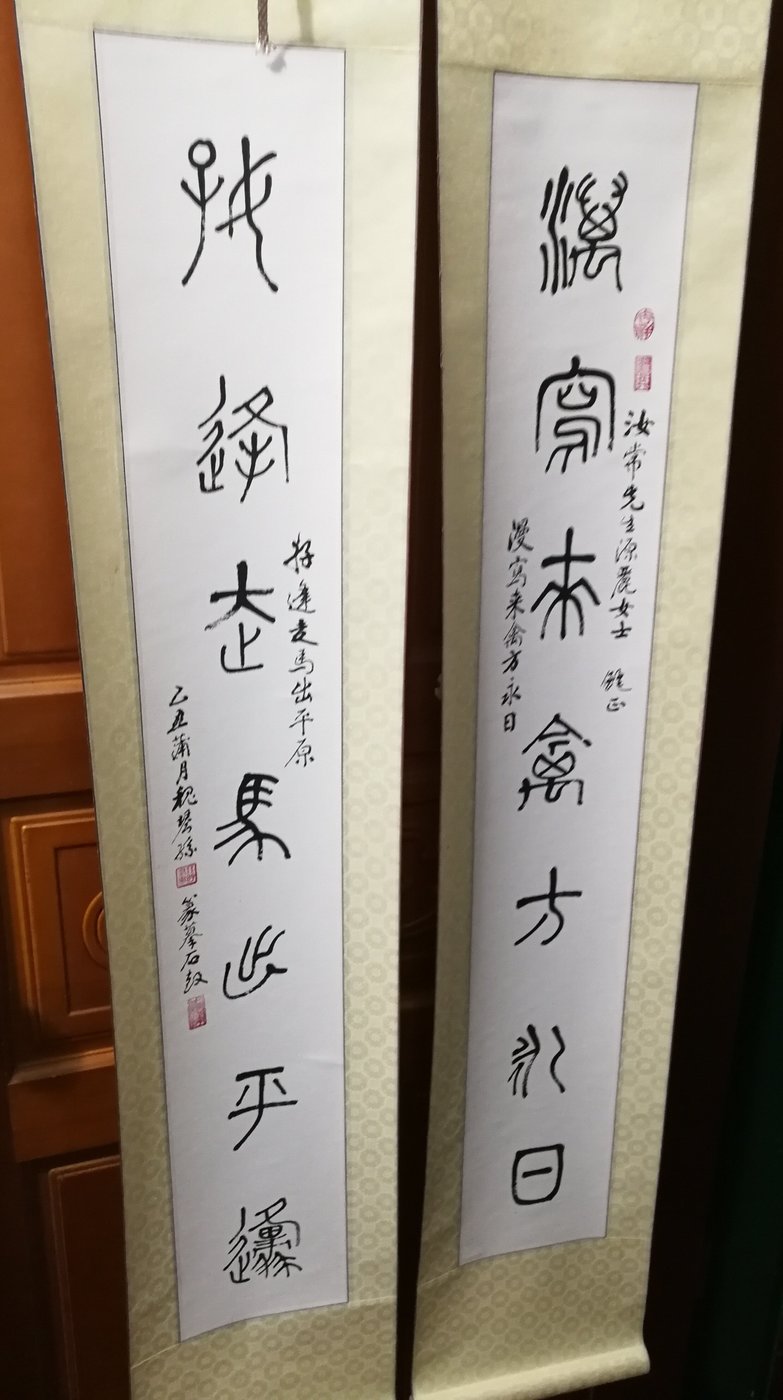 汝常先生源麗女士 正
漫寫來禽方永日
漫寫来禽方永日
好逢走馬出平原
好逢走馬出平原
乙丑蒲月魏琴孫 篆摹石鼓